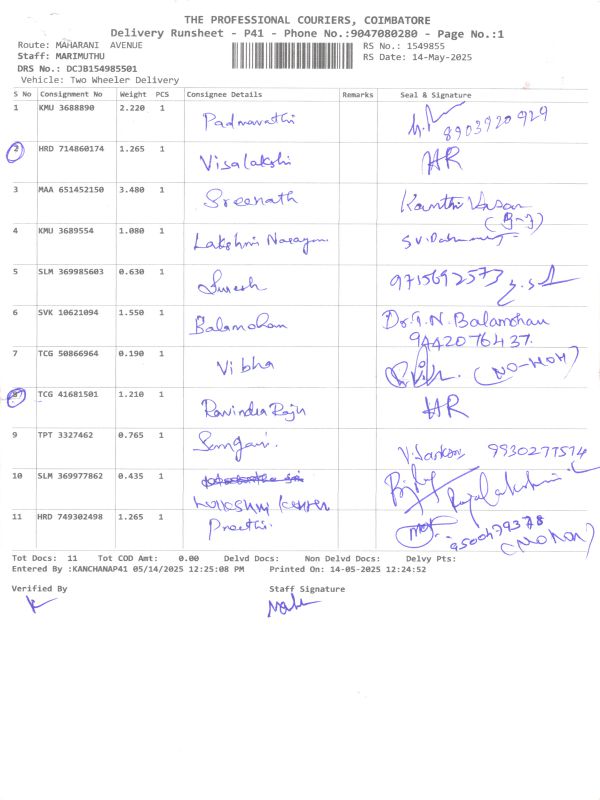 THE PROFESSIONAL COURIERS, COIMBATORE
Delivery Runsheet - P41 - Phone No.:9047080280 - Page No.:1
Route: MAHARANI AVENUE RS No.: 1549855
Staff: MARIMUTHU RS Date: 14-May-2025
DRS No.: DCJB154985501
Vehicle: Two Wheeler Delivery
S No Consignment No Weight PCS Consignee Details Remarks Seal & Signature
1 KMU 3688890 2.220 1 Padmavathi 8903920929
2 HRD 714860174 1.265 1 Visalakshi HR
3 MAA 651452150 3.480 1 Sreenath Kanthi Vasan
4 KMU 3689554 1.080 1 Lakshmi Narayan
5 SLM 369985603 0.630 1 Suresh 9715692573
6 SVK 10621094 1.550 1 Balamohan Dr.T.N. Balamohan
9442076437.
7 TCG 50866964 0.190 1 Vibha
8 TCG 41681501 1.210 1 Ravindra Raju HR
9 TPT 3327462 0.765 1 9930277574
10 SLM 369977862 0.435 1 Rajalakshmi
11 HRD 749302498 1.265 1 Preethi.
Tot Docs: 11 Tot COD Amt: 0.00 Delvd Docs: Non Delvd Docs: Delvy Pts:
Entered By :KANCHANAP41 05/14/2025 12:25:08 PM Printed On: 14-05-2025 12:24:52
Verified By Staff Signature